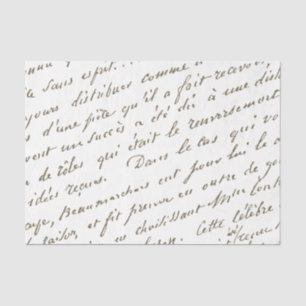 le sans esprit...
jours distribues comme
d'une pièce qu'il a fait recevoir,
vent un succès a été dû à une dis
de rôles qui était le renversement
idées reçues. Dans le cas qui vo
Beaumarchais eut pour lui le
et fit preuve en outre de go
en choisissant
Cette célèbre